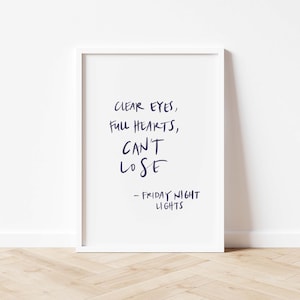 CLEAR EYES,
FULL HEARTS,
CAN'T
LOSE
- FRIDAY NIGHT
LIGHTS